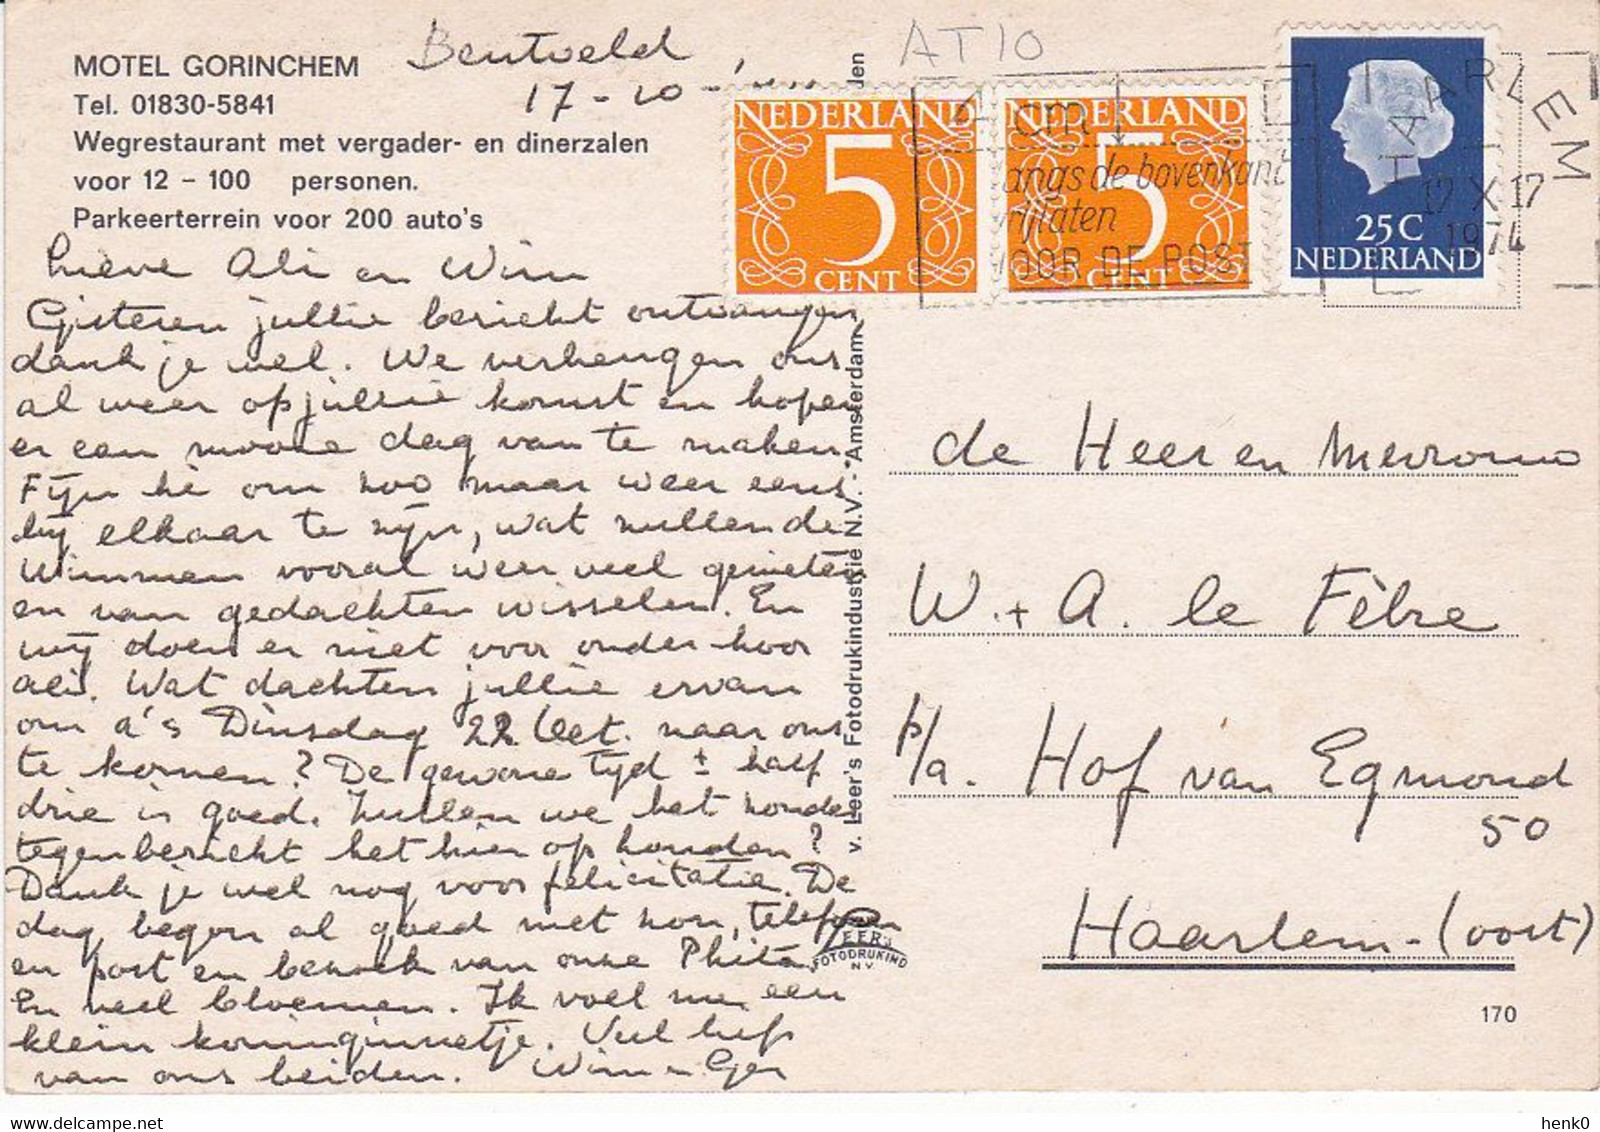 MOTEL GORINCHEM
Tel. 01830-5841
Wegrestaurant met vergader- en dinerzalen
voor 12 - 100 personen.
Parkeerterrein voor 200 auto's
Bentveld
17-10-
AT10
NEDERLAND
5
CENT
NEDERLAND
5
CENT
25 C
NEDERLAND
cm
langs de bovenkant
vrijlaten
VOOR DE POST
HAARLEM
17 X 17
1974
Lieve Ali en Wim
Gisteren jullie bericht ontvangen,
dank je wel. We verheugen ons
al weer op jullie komst en hopen
er een mooie dag van te maken.
Fijn hè om zoo maar weer eens
bij elkaar te zijn, wat zullen de
Wimmen vooral weer veel genieten
en van gedachten wisselen. En
wij doen er niet voor onder hoor
Ali. Wat dachten jullie ervan
om a's Dinsdag 22 Oct. naar ons
te komen? De gewone tijd ± half
drie is goed. Zullen we het zonder
tegenbericht het hier op houden?
Dank je wel nog voor felicitatie. De
dag begon al goed met zon, telefoon
en post en bezoek van onze Phita.
En veel bloemen. Ik voel me een
klein koninginnetje. Veel liefs
van ons beiden. Wim en Ger
v. Leer's Fotodrukindustrie N.V. - Amsterdam
LEER'S
FOTODRUKIND
NV
de Heer en Mevrouw
W. + A. le Fèbre
p/a. Hof van Egmond
50
Haarlem-(oost)
170
henk0